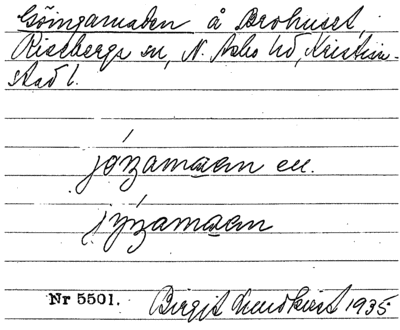 Göingamaden å Brohuset,
Riseberga sn, N. Åsbo hd, Kristian-
stad l.
jøzamaen ell.
jyzamaen
Nr 5501. Birgit Lundkvist 1935